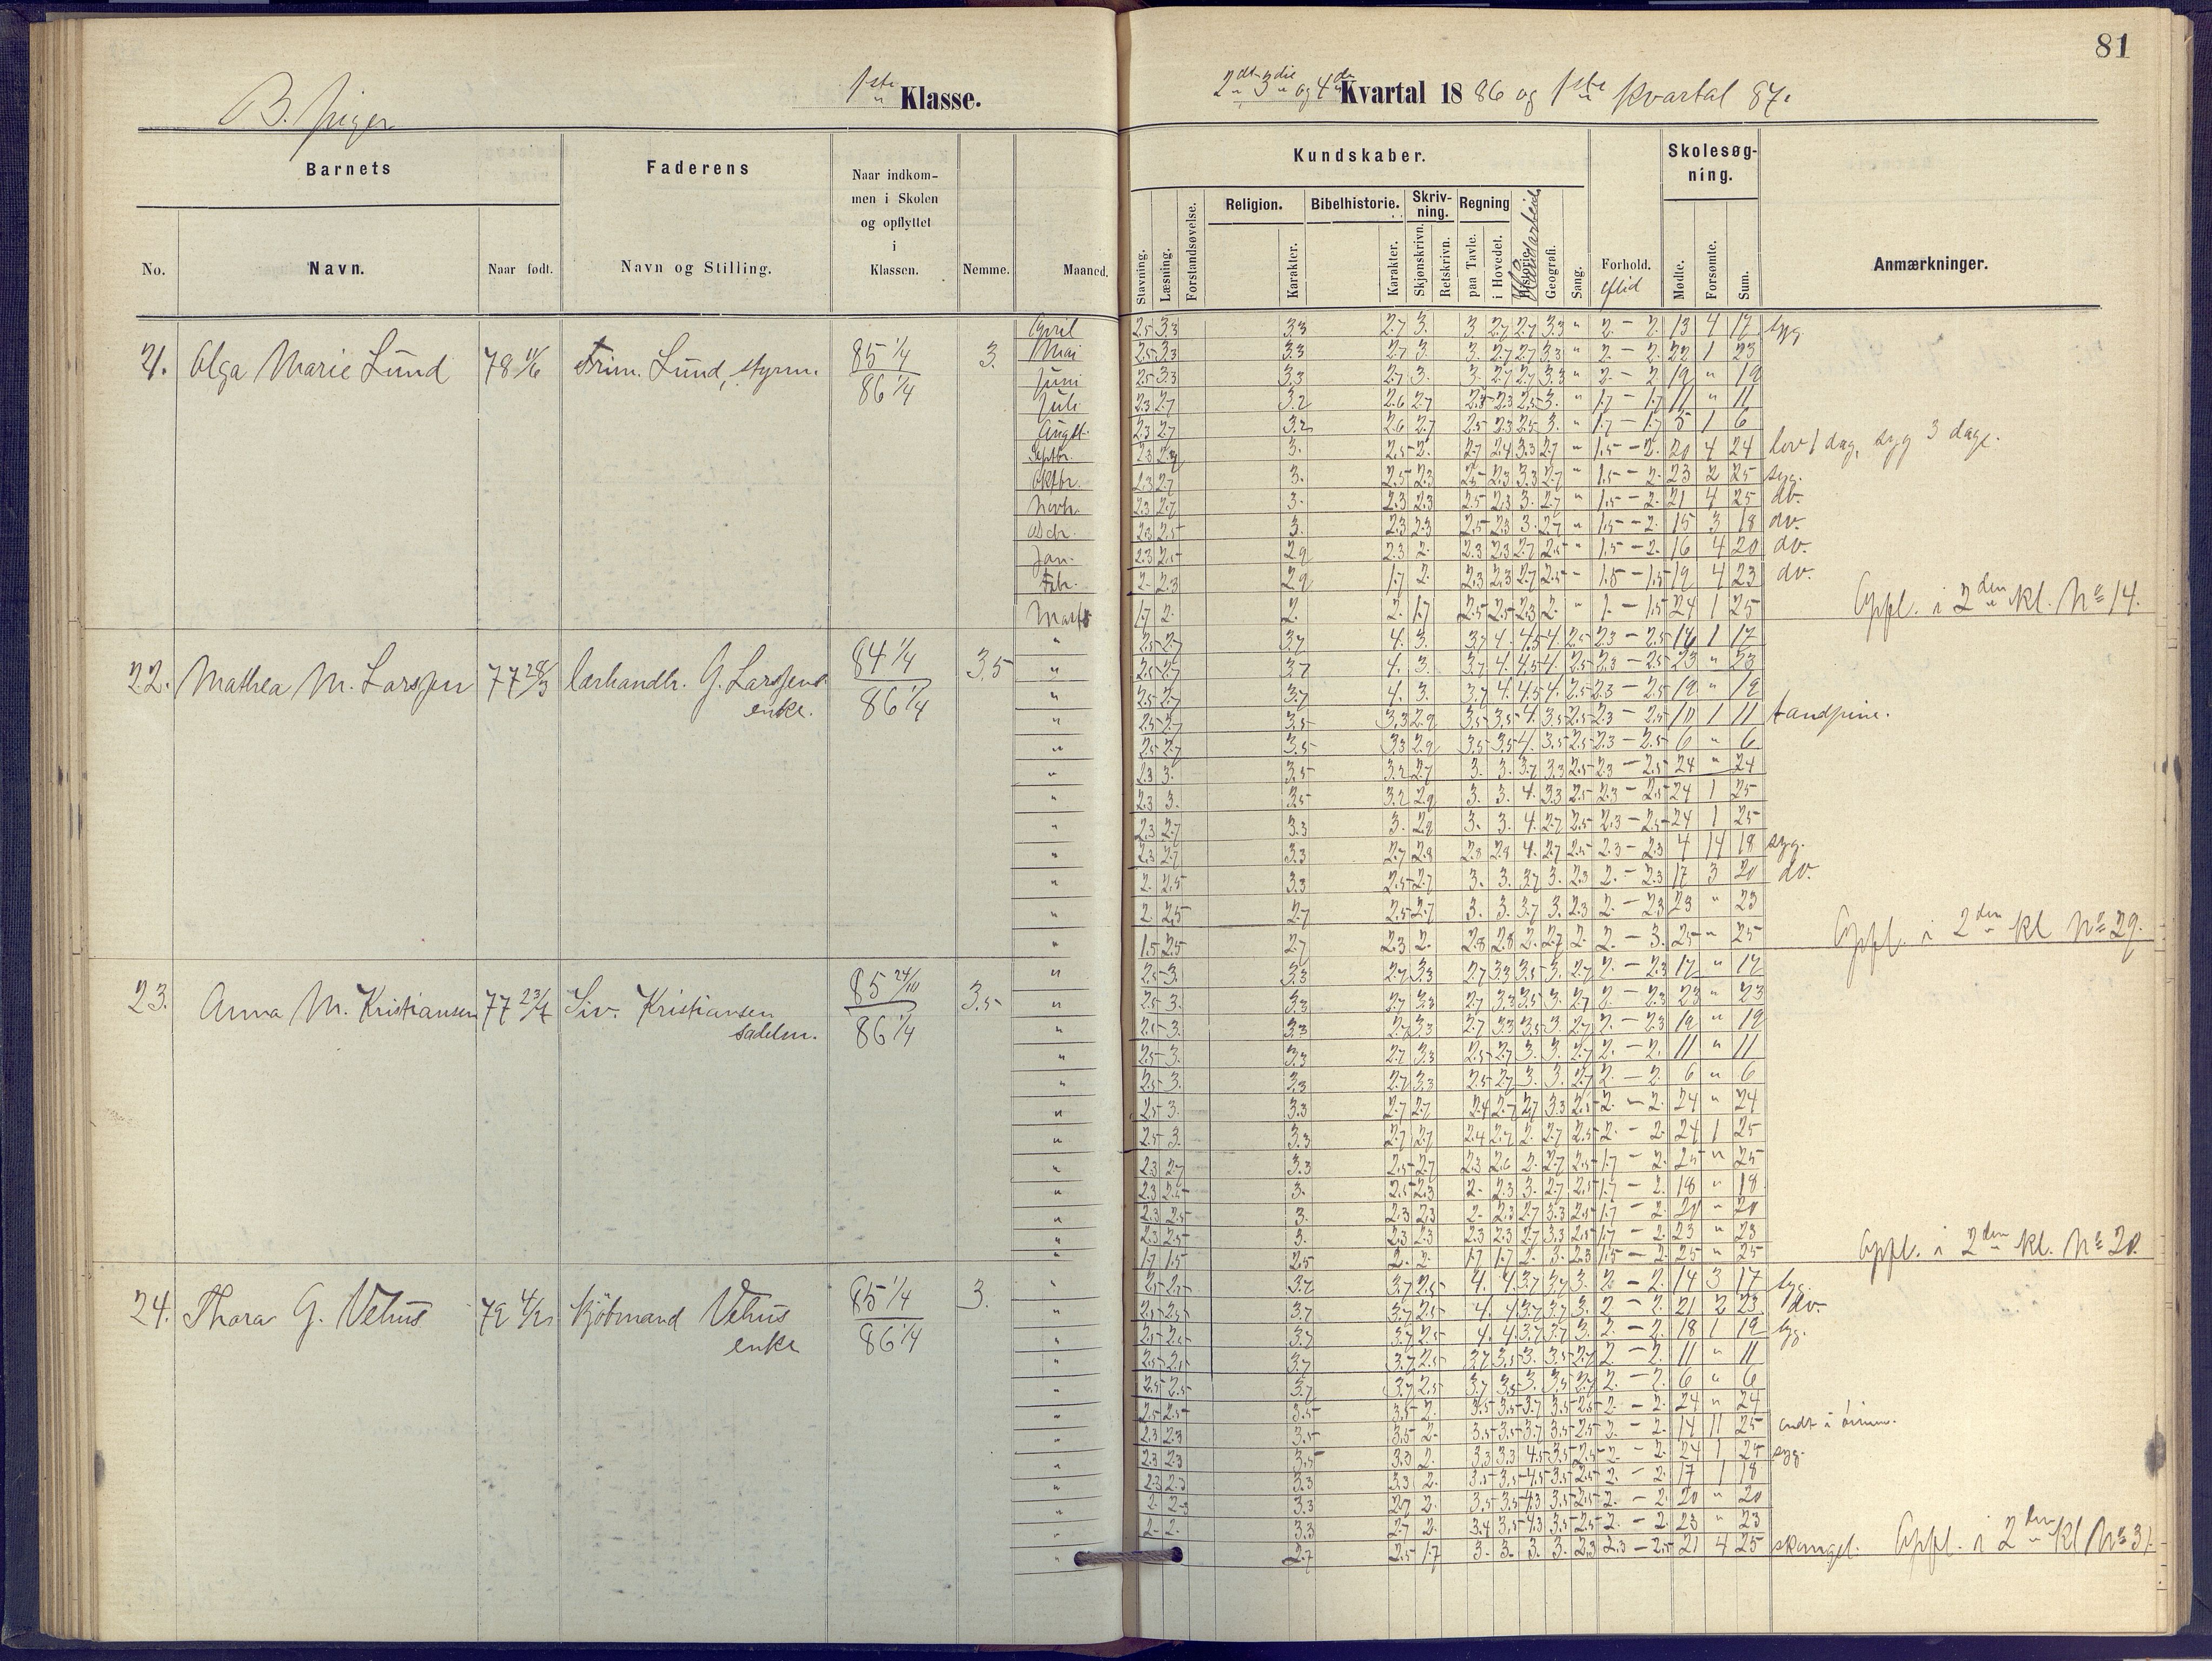 81
B. Piger
1ste Klasse.
2det 3die og 4de Kvartal 1886 og 1ste Kvartal 87.
Barnets
Faderens
Naar indkommen i Skolen og opflyttet i Klassen.
Nemme.
Maaned.
No.
Navn.
Naar født.
Navn og Stilling.
Kundskaber.
Skolesøgning.
Stavning.
Læsning.
Forstandsøvelse.
Religion.
Karakter.
Bibelhistorie.
Karakter.
Skrivning.
Skjønskrivn.
Retskrivn.
Regning
paa Tavle.
i Hovedet.
Historie.
Haandarbeide
Geografi.
Sang.
Forhold.
Flid
Mødte.
Forsømte.
Sum.
Anmærkninger.
21. Olga Marie Lund 78 11/6 Lund, styrm. 85 1/4 86 1/4 3.
April 2.5 3.3 3.3 2.7 3. 3 2.7 2.7 3.3 " 2. - 2. 13 4 17 syg.
Mai 2.5 3.3 3.3 2.7 3. 3. 2.7 2.7 3.3 " 2. - 2. 22 1 23
Juni 2.5 3.3 3.3 2.7 3. 3. 2.7 2.7 3.3 " 2. - 2. 19 " 19
Juli 2.3 2.7 3.2 2.6 2.7 2.5 2.3 2.5 3. " 1.7 - 1.7 11 " 11
Augst. 2.3 2.7 3.2 2.6 2.7 2.5 2.3 2.5 3. " 1.7 - 1.7 5 1 6
Septbr. 2.3 2.7 3. 2.5 2. 2.7 2.4 3.3 2.7 " 1.5 - 2. 20 4 24 lov 1 dag, syg 3 dage.
Oktbr. 2.3 2.7 3. 2.5 2.3 2.5 2.3 3.3 2.7 " 1.5 - 2. 23 2 25 syg.
Novb. 2.3 2.7 3. 2.3 2.3 2.5 2.3 3. 2.7 " 1.5 - 2. 21 4 25 do.
Dcbr. 2.3 2.5 3. 2.3 2.3 2.5 2.3 3. 2.7 " 1.5 - 2. 15 3 18 do.
Jan. 2.3 2.5 2.9 2.3 2. 2.3 2.3 2.7 2.5 " 1.5 - 2. 16 4 20 do.
Febr. 2. 2.3 2.9 1.7 2. 2.3 2.3 2.7 2.5 - 1.5 - 1.5 19 4 23 do.
Marts 1.7 2. 2. 2. 1.7 2.5 2.5 2.3 2. " 1. - 1.5 24 1 25 Oppl. i 2den kl. No 14.
22. Mathea M. Larssen 77 28/3 G. Larssens enke. 84 1/4 86 1/4 3,5
" 2.5 2.7 3.7 4. 3. 3.7 4. 4.5 4. 2.5 2.3 - 2.5 16 1 17
" 2.5 2.7 3.7 4. 3. 3.7 4. 4.5 4. 2.5 2.3 - 2.5 23 " 23
" 2.5 2.7 3.7 4. 3. 3.7 4. 4.5 4. 2.5 2.3 - 2.5 19 " 19
" 2.5 2.7 3.5 3.3 2.9 3.5 3.5 4. 3.5 2.5 2.3 - 2.5 10 1 11 tandpine.
" 2.5 2.7 3.5 3.3 2.9 3.5 3.5 4. 3.5 2.5 2.3 - 2.5 6 " 6
" 2.3 3. 3.5 3.2 2.7 3. 3. 3.7 3.3 2.5 2.3 - 2.5 24 " 24
" 2.3 3. 3.5 3.2 2.9 3. 3. 4. 3.3 2.5 2.3 - 2.5 24 1 25
" 2.3 2.7 3.3 3. 2.9 3. 3. 4. 2.7 2.5 2.3 - 2.5 24 1 25
" 2.3 2.7 3.3 2.7 2.9 2.8 2.8 4. 2.7 2.5 2.3 - 2.3 4 14 18 syg.
" 2. 2.5 3.3 2.5 2.7 3. 3. 3.7 3. 2.3 2. - 2.3 17 3 20 do.
" 2. 2.5 2.7 2.5 2.7 3. 3. 3.7 3. 2.3 2. - 2.3 23 " 23
" 1.5 2.5 2.7 2.3 2. 2.8 2.8 2. 2.7 2. 2. - 3. 25 " 25 Oppl. i 2den kl No 29.
23. Anna M. Kristiansen 77 23/7 Siv. Kristiansen sadelm. 85 24/10 86 1/4 3.5
" 2.5 3. 3.3 2.7 3.3 2.7 3.3 3.5 3. 2.7 2. - 2.3 17 " 17
" 2.5 3. 3.3 2.7 3.3 2.7 3.3 3.5 3. 2.7 2. - 2.3 23 " 23
" 2.5 3. 3.3 2.7 3.3 2.7 3.3 3.5 3. 2.7 2. - 2.3 19 " 19
" 2.5 3. 3.3 2.7 3.3 2.5 2.7 3. 3. 2.7 2. - 2. 11 " 11
" 2.5 3. 3.3 2.7 3.3 2.5 2.7 3. 3. 2.7 2. - 2. 6 " 6
" 2.5 3. 3.3 2.7 2.7 2.4 2.7 2.7 3.3 2.5 2. - 2. 24 " 24
" 2.5 3. 3.3 2.7 2.7 2.4 2.7 2. 2.7 2.5 2. - 2. 24 1 25
" 2.3 2.7 3.3 2.5 2.7 2.3 2.6 2. 2.7 2.5 1.7 - 2. 25 " 25
" 2.3 2.5 3. 2.5 2.3 2. 2.3 3. 2.7 2.5 1.7 - 2. 18 " 18
" 2.3 2.5 3. 2.3 2.3 2. 2.3 2.7 3.3 2.5 1.7 - 2. 20 " 20
" 2.3 2.5 3. 2.3 2.3 2.3 2.3 2.7 3.3 2.5 1.7 - 2. 23 " 23
" 1.7 1.5 2.5 2. 2. 1.7 1.7 2. 3. 2.3 1.5 - 2. 25 " 25 Oppl. i 2den kl. No 20.
24. Thora G. Vehus 79 Kjöbmand Vehus enke 85 1/4 86 1/4 3.
" 2.5 2.5 3.7 3.7 2.5 4. 4. 3.7 3.7 3. 2. - 2. 14 3 17 syg.
" 2.5 2.5 3.7 3.7 2.5 4. 4. 3.7 3.7 3. 2. - 2. 21 2 23 do.
" 2.5 2.5 3.7 3.7 2.5 4. 4. 3.7 3.7 3. 2. - 2. 18 1 19 syg.
" 2.5 2.5 3.7 3.7 2.5 3.7 3.5 3. 3.5 2.7 2. - 2. 11 " 11
" 2.5 2.5 3.7 3.7 2.5 3.7 3.5 3. 3.5 2.7 2. - 2. 6 " 6
" 2.5 2.5 3.5 3.5 2. 3.5 3.5 3.7 3.5 2.5 2. - 2. 24 " 24
" 2.3 2.3 3.5 3.5 2. 3.5 3.5 3.7 3.5 2.5 2. - 2. 14 11 25 ondt i
" 2.3 2.3 3.5 3.3 2. 3.3 3.3 4.5 3.5 2.5 2. - 2. 24 1 25 syg.
" 2.3 2.3 3.3 3.3 2. 3.5 3.5 4.5 3.5 2.5 2. - 2. 17 1 18
" 2. 2.3 3.3 2.7 2. 3.5 3.5 4.3 3.5 2.5 2. - 2. 20 " 20
" 2. 2. 3.3 2.7 2. 3.4 3.5 4.3 3.5 2.5 2. - 2. 23 " 23
" 2.7 2.5 1.7 3. 3. 3. 3. 2.3 2.3 - 2.5 21 4 25 Oppl. i 2den kl No 31.